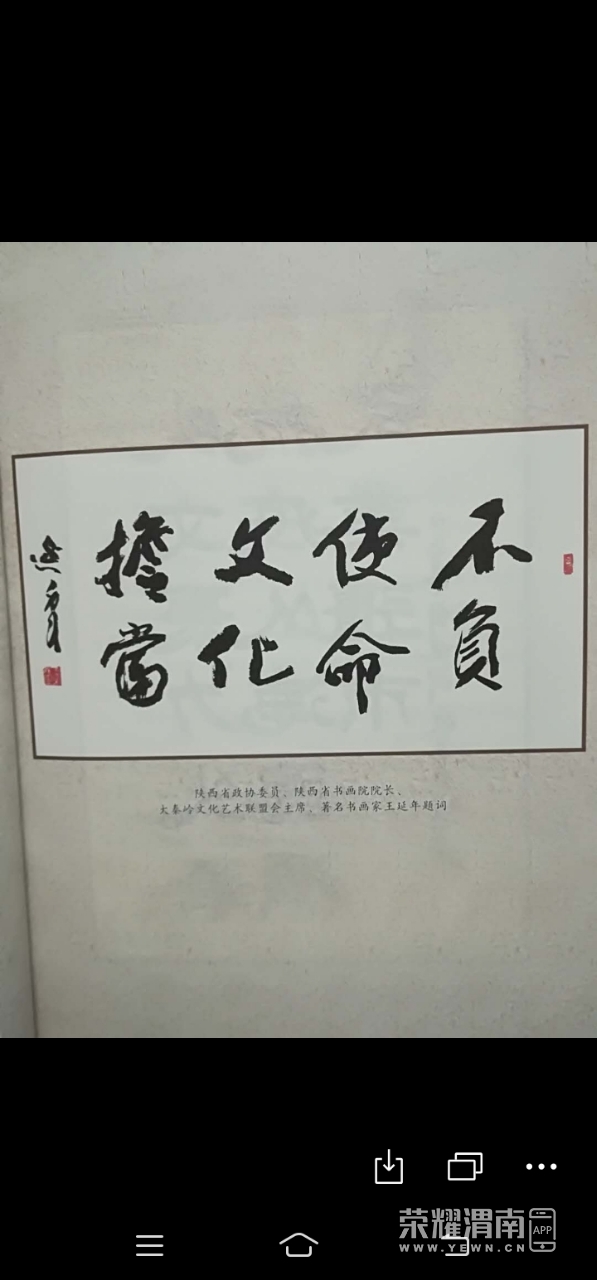 不负
使命
文化
擔當
延年
陕西省政协委员、陕西省书画院院长、
大秦岭文化艺术联盟会主席、著名书画家王延年题词
荣耀渭南
APP
WWW.YEWN.CN